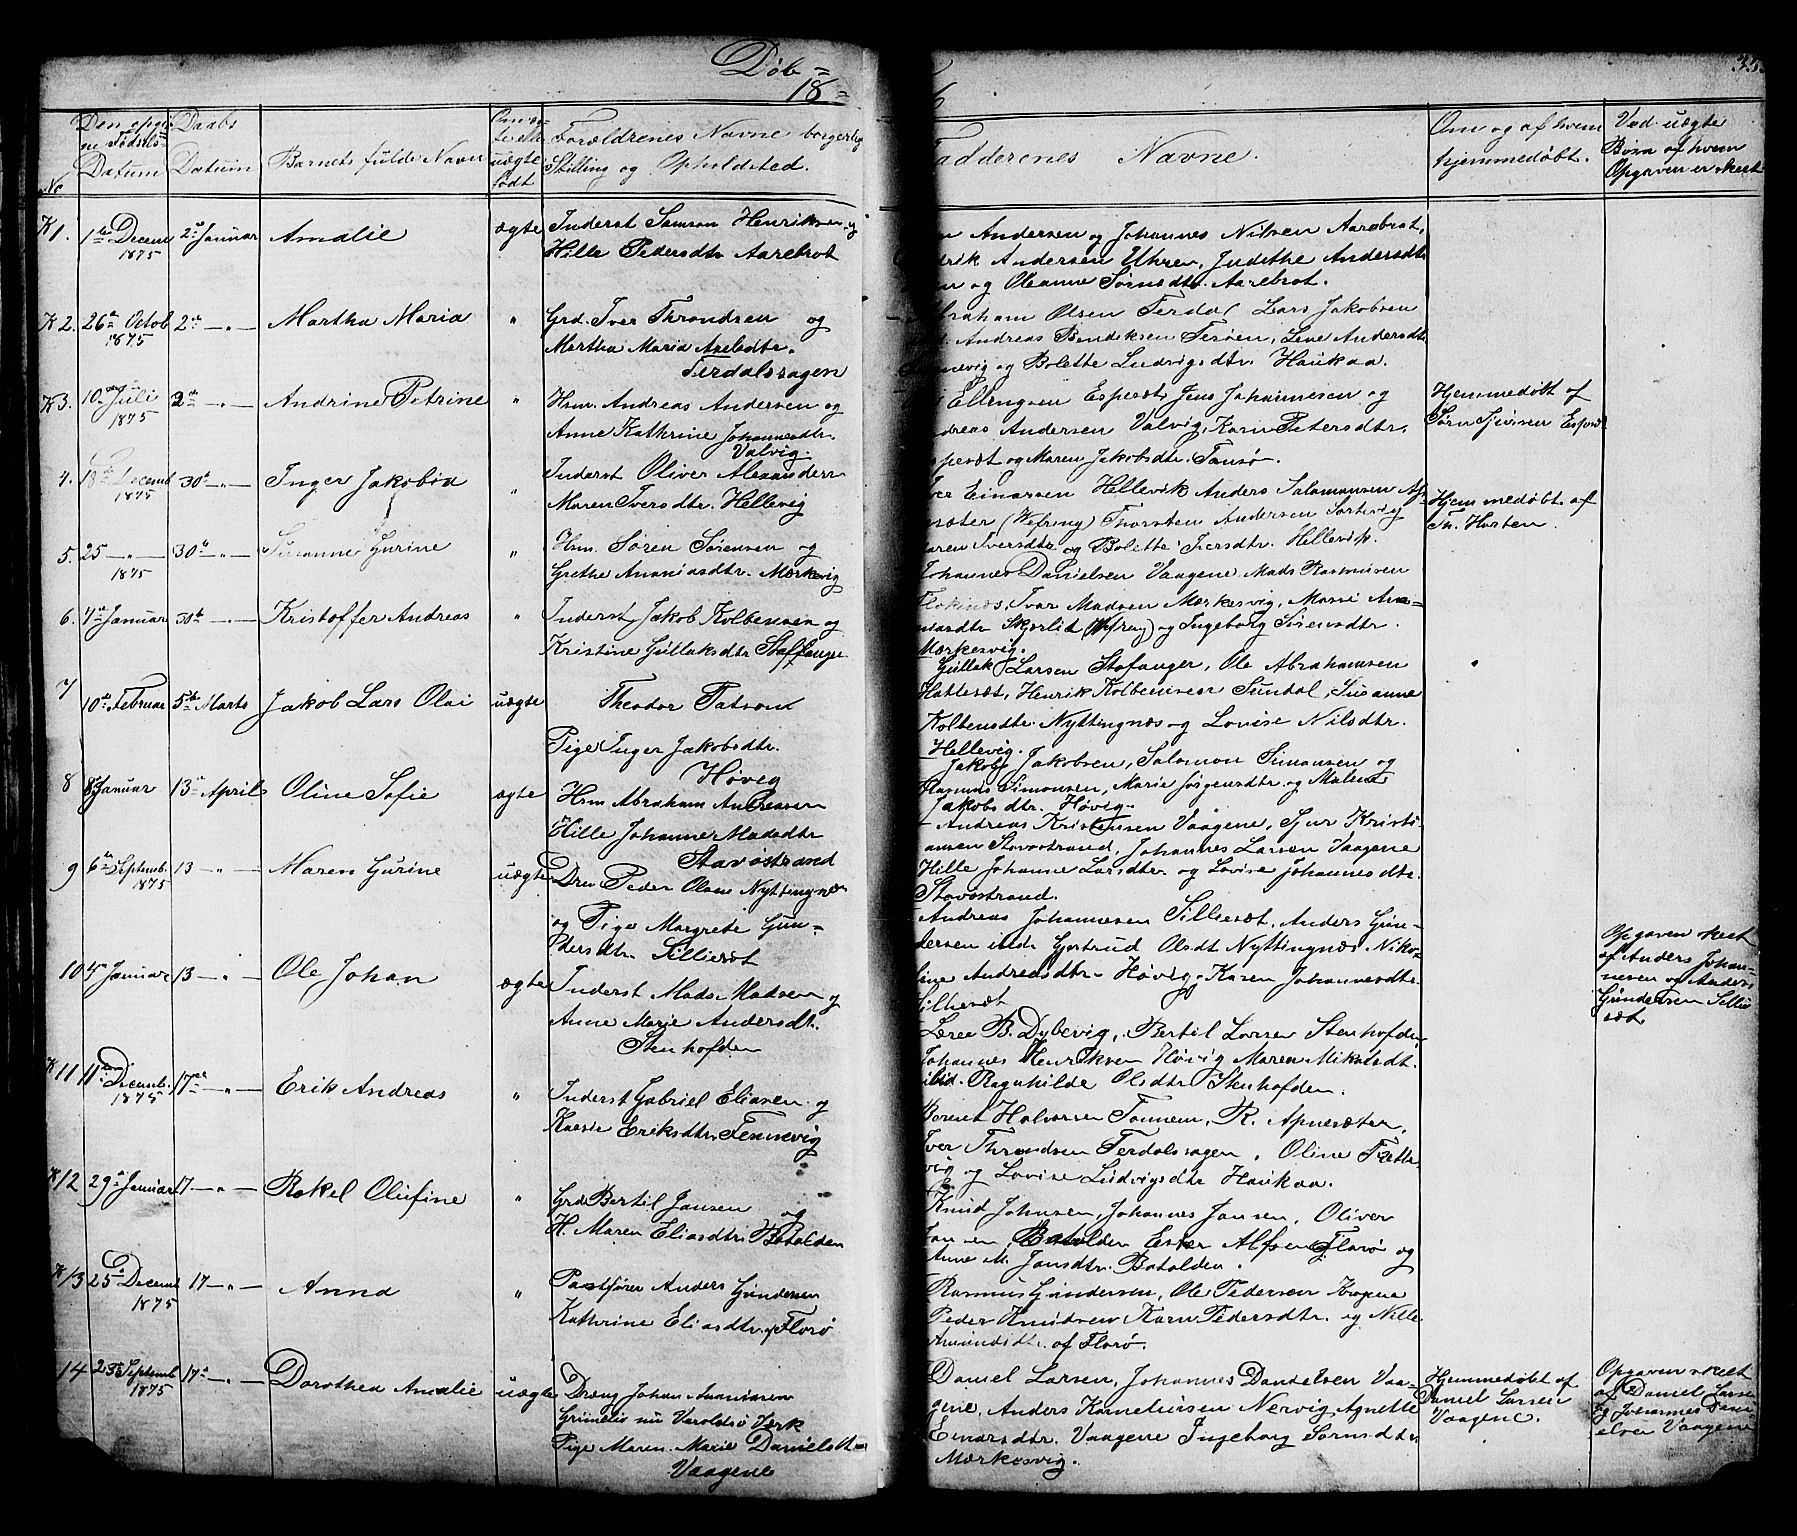 Døb =
18 =
6
Den opgi-
ne Fødsels
Datum
No
Daabs
Datum
Barnets fulde Navn
Om æg-
te eller
uægte
født
Forældrenes Navne borgerlig
Stilling og Opholdsted.
Fadderenes Navne.
Om og af hvem
hjemmedøbt.
Ved uægte
Børn af hvem
Opgaven er skeet
K 1. 1ste Decem
1875
2den Januar
Amalie
ægte
Inderst Samson Henriksen og
Hille Pedersdtr Aarebrot
Andersen og Johannes Nilsen Aarebrot,
Andersen Uhren, Judithe Andersdtr
og Oleanne Sørnsdtr. Aarebrot.
K 2. 26de Octob
1875
2den — " —
Martha Maria
"
Grd. Iver Throndsen og
Martha Maria Axelsdtr.
Ferdalssagen
Abraham Olsen Ferdal Lars Jakobsen
Andreas Bendiksen Terøen, Lene Andersdtr
og Bolette Ludvigsdtr. Haukaa.
K 3. 10de Juli
1875
2den — " —
Andrine Petrine
"
Hsm. Andreas Andersen og
Anne Kathrine Johannesdtr.
Valvig.
Ellingsen Espesæt Jens Johannesen og
Andreas Andersen Valvig, Karn Petersdtr.
Espesæt og Maren Jakobsdtr. Tansø.
Hjemmedøbt af
Sørn Sjursen Espesæt
4. 18de Decemb
1875
30te — " —
Inger Jakobia
"
Inderst Oliver Alexandersen
Maren Iversdtr. Hellevig
Iver Einarsen Hellevik Anders Salamonsen
(Vefring) Thorsten Andersen Sortevig
Maren Iversdtr og Bolette Iversdtr. Hellevik.
Hjemmedøbt af
Th. Horten.
5. 25 — " —
1875
30te — " —
Susanne Gurine
"
Hsm. Søren Sørensen og
Grethe Ananiasdtr. Mærkesvig
Johannes Danielsen Vaagene Mads Rasmusen
Flokenæs, Ivar Madsen Mærkesvig, Marie Ana-
niasdtr Skjerlid (Vefring) og Ingeborg Sørensdtr.
Mærkesvig.
6. 4de Januar
30te — " —
Kristoffer Andreas
"
Inderst Jakob Kolbensen og
Kristine Gullaksdtr Staffanger.
Gullak Larsen Stafanger, Ole Abrahamsen
Hattesæt, Henrik Kolbensen Sundal, Susanne
Kolbensdtr. Nyttingnæs og Lovise Nilsdtr.
Hellevig.
7
10de Februar
5te Marts
Jakob Lars Olai
uægte
Theodor Patsons
Pige Inger Jakobsdtr.
Høvig
Jakob Jakobsen, Salomon Simonsen og
Rasmus Simonsen, Marie Jørgensdtr. og Malene
Jakobsdtr. Høvig.
8 8de Januar
13de April
Oline Sofie
ægte
Hsm Abraham Andreasen
Hille Johanne Madsdtr
Stavøstrand
Andreas Kristensen Vaagene, Sjur Kristi-
ansen Stavøstrand, Johannes Larsen Vaagene
Hille Johanne Larsdtr og Lovise Johannesdtr.
Stavøstrand.
9 6te Septemb.
1875
13 — " —
Maren Gurine
uægte
Dren Peder Olsen Nyttingnæs
og Pige Margrete Gun-
dersdtr. Sillesæt
Andreas Johannesen Sillesæt, Anders Gun-
dersen Gjertrud Olsdt Nyttingnæs Niko-
line Andreasdtr. Høvig, Karen Johannesdtr.
Sillesæt
Opgaven skeet
af Anders Johan-
nesen og Anders
Gundersen Silles-
æt
10 4de Januar
13 — " —
Ole Johan
ægte
Inderst Mads Madsen og
Anne Marie Andersdtr.
Stenhofden
Lærer B. Dybevig, Bertil Larsen Stenhofden
Johannes Henriksen Høvig Maren Mikalsdt.
Ragnhilde Olsdtr Stenhofden.
K 11 11te Decemb.
1875
17de — " —
Erik Andreas
"
Inderst Gabriel Eliasen og
Kaesie Eriksdtr. Tennevig
Berent Halvorsen Tonnem, R. Apnesæter,
Iver Throndsen Ferdalssagen, Oline Fætte-
vig og Lovise Ludvigsdtr Haukaa.
K 12 29de Januar
17 — " —
Rakel Olufine
"
Grd Bertil Jansen og
H. Maren Eliasdtr. Batalden
Knud Johnsen, Johannes Jansen, Oliver
Jansen, Batalden Esker Alfsen Florø og
Anne M. Jansdtr. Batalden.
K 13 25de Decemb
1875
17 — " —
Anna
"
Postfører Anders Gundersen
Kathrine Eliasdtr. af Florø
Rasmus Gundersen, Ole Pedersen Krogene
Peder Knudsen Karn Pedersdtr. og Nille
Amundsdtr. af Florø.
14 23de Septemb
1875
17de — " —
Dorothea Amalie
uægte
Dreng Johan Ananiasen
Grimelid nu Varaldsø Værk
Pige Maren Marie Danielsdtr
Vaagene
Daniel Larsen, Johannes Danielsen Vaa-
gene, Anders Korneliussen Nervig Agnette
Einarsdtr. Vaagene Ingeborg Sørnsdtr
Mærkesvig.
Hjemmedøbt af
Daniel Larsen
Vaagene.
Opgaven skeet
af Daniel Larsen
og Johannes Dani-
elsen Vaagene